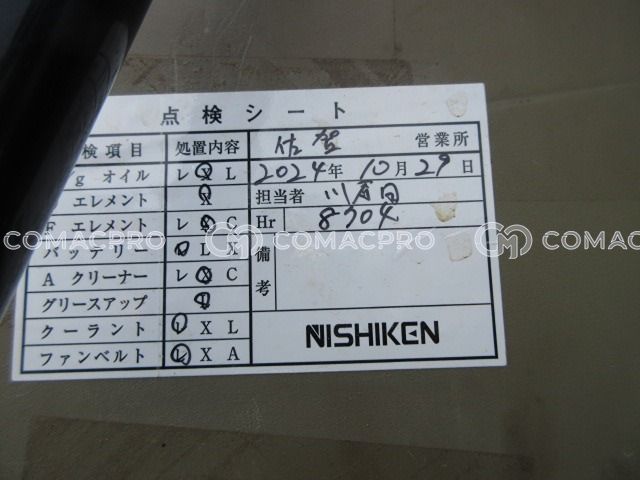 点検シート
検項目 処置内容 佐賀 営業所
g オイル レ X L 2024年 10月 29日
エレメント X 担当者
F エレメント レ X C Hr 8304
バッテリー レ L X 備考
A クリーナー レ X C
グリースアップ
クーラント レ X L
ファンベルト レ X A
NISHIKEN
COMACPRO COMACPRO COMACPRO